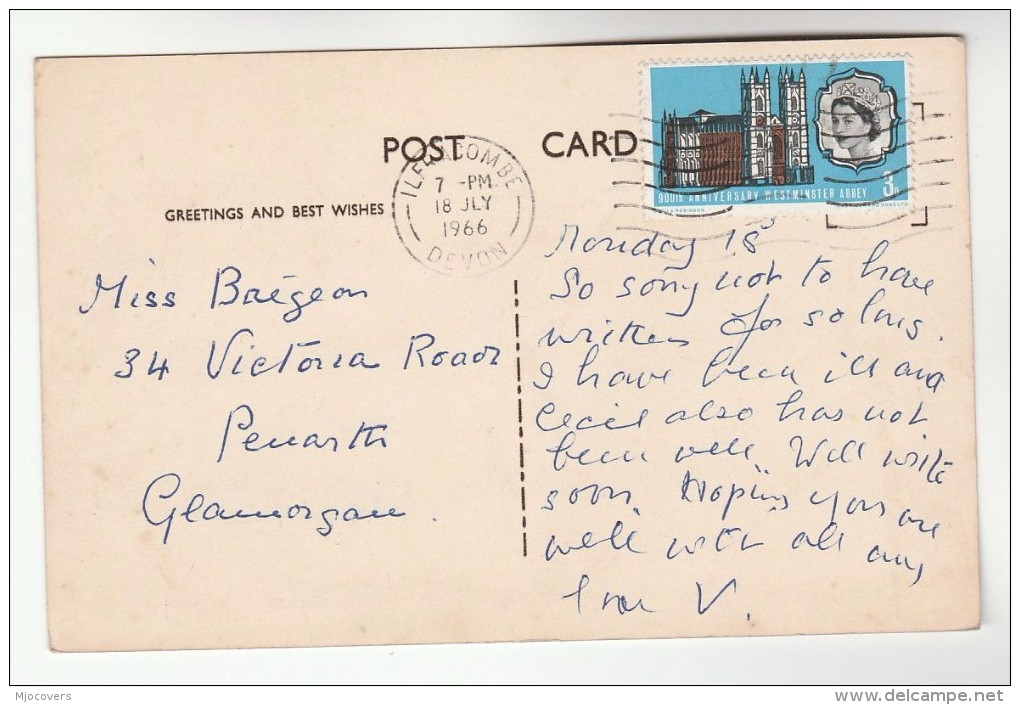 POST CARD
ILFRACOMBE
7 -PM
18 JLY
1966
DEVON
900TH ANNIVERSARY WESTMINSTER ABBEY
3D
GREETINGS AND BEST WISHES
Miss Brégeon
34 Victoria Road
Penarth
Glamorgan.
Monday 18
So sorry not to have
written for so long.
I have been ill and
Cecil also has not
been well. Will write
soon. Hoping you are
well with all my
love V.
Mjocovers
www.delcampe.net